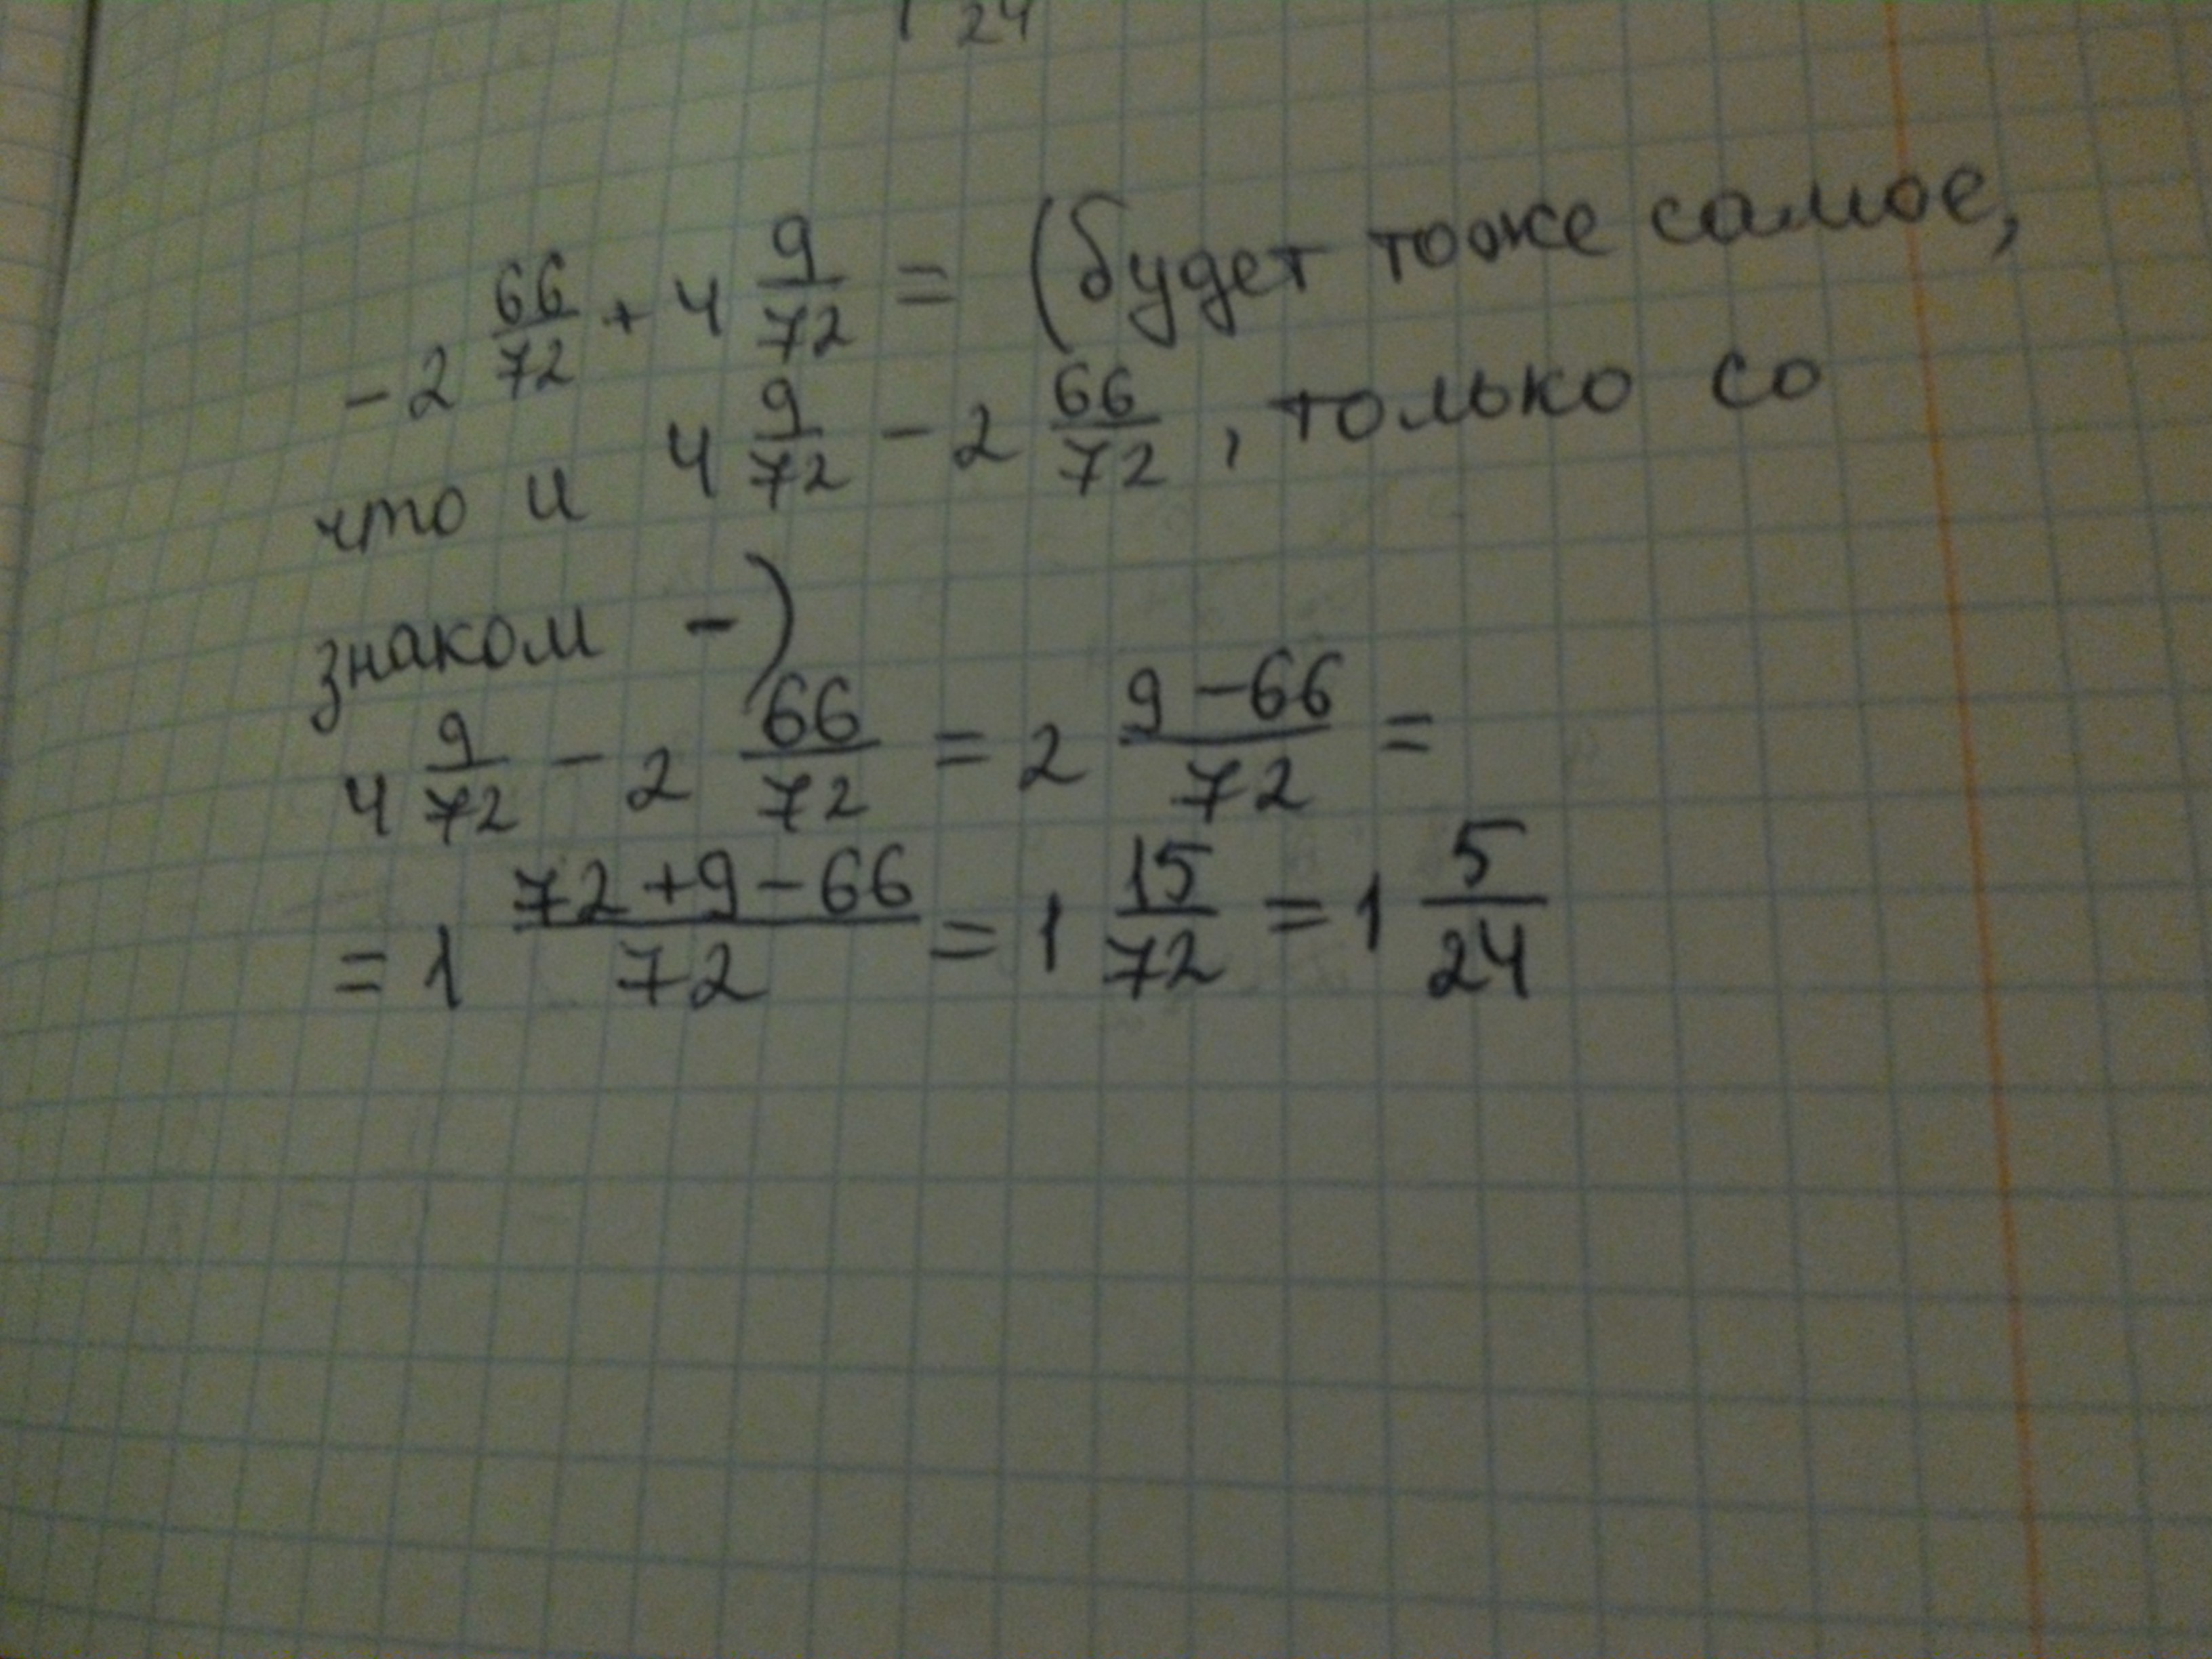 24
-2 66/72 + 4 9/72 = (будет тоже самое,
что и 4 9/72 - 2 66/72, только со
знаком -)
4 9/72 - 2 66/72 = 2 9-66/72 =
= 1 72+9-66/72 = 1 15/72 = 1 5/24